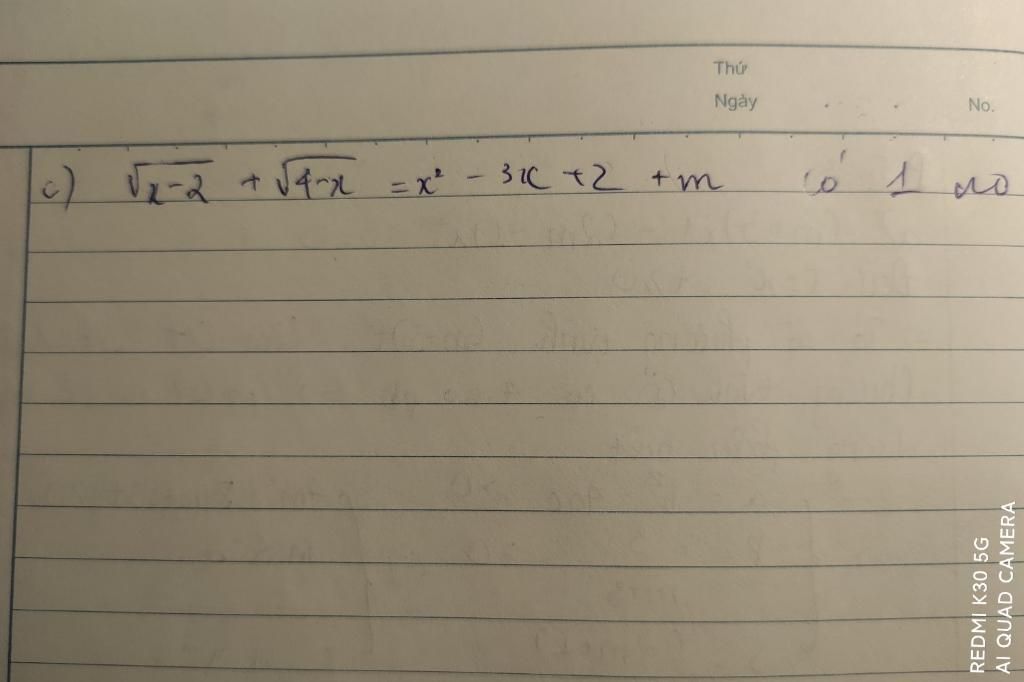 Thứ
Ngày No.
c) √x-2 + √4-x = x² - 3x + 2 + m có 1 no
REDMI K30 5G
AI QUAD CAMERA